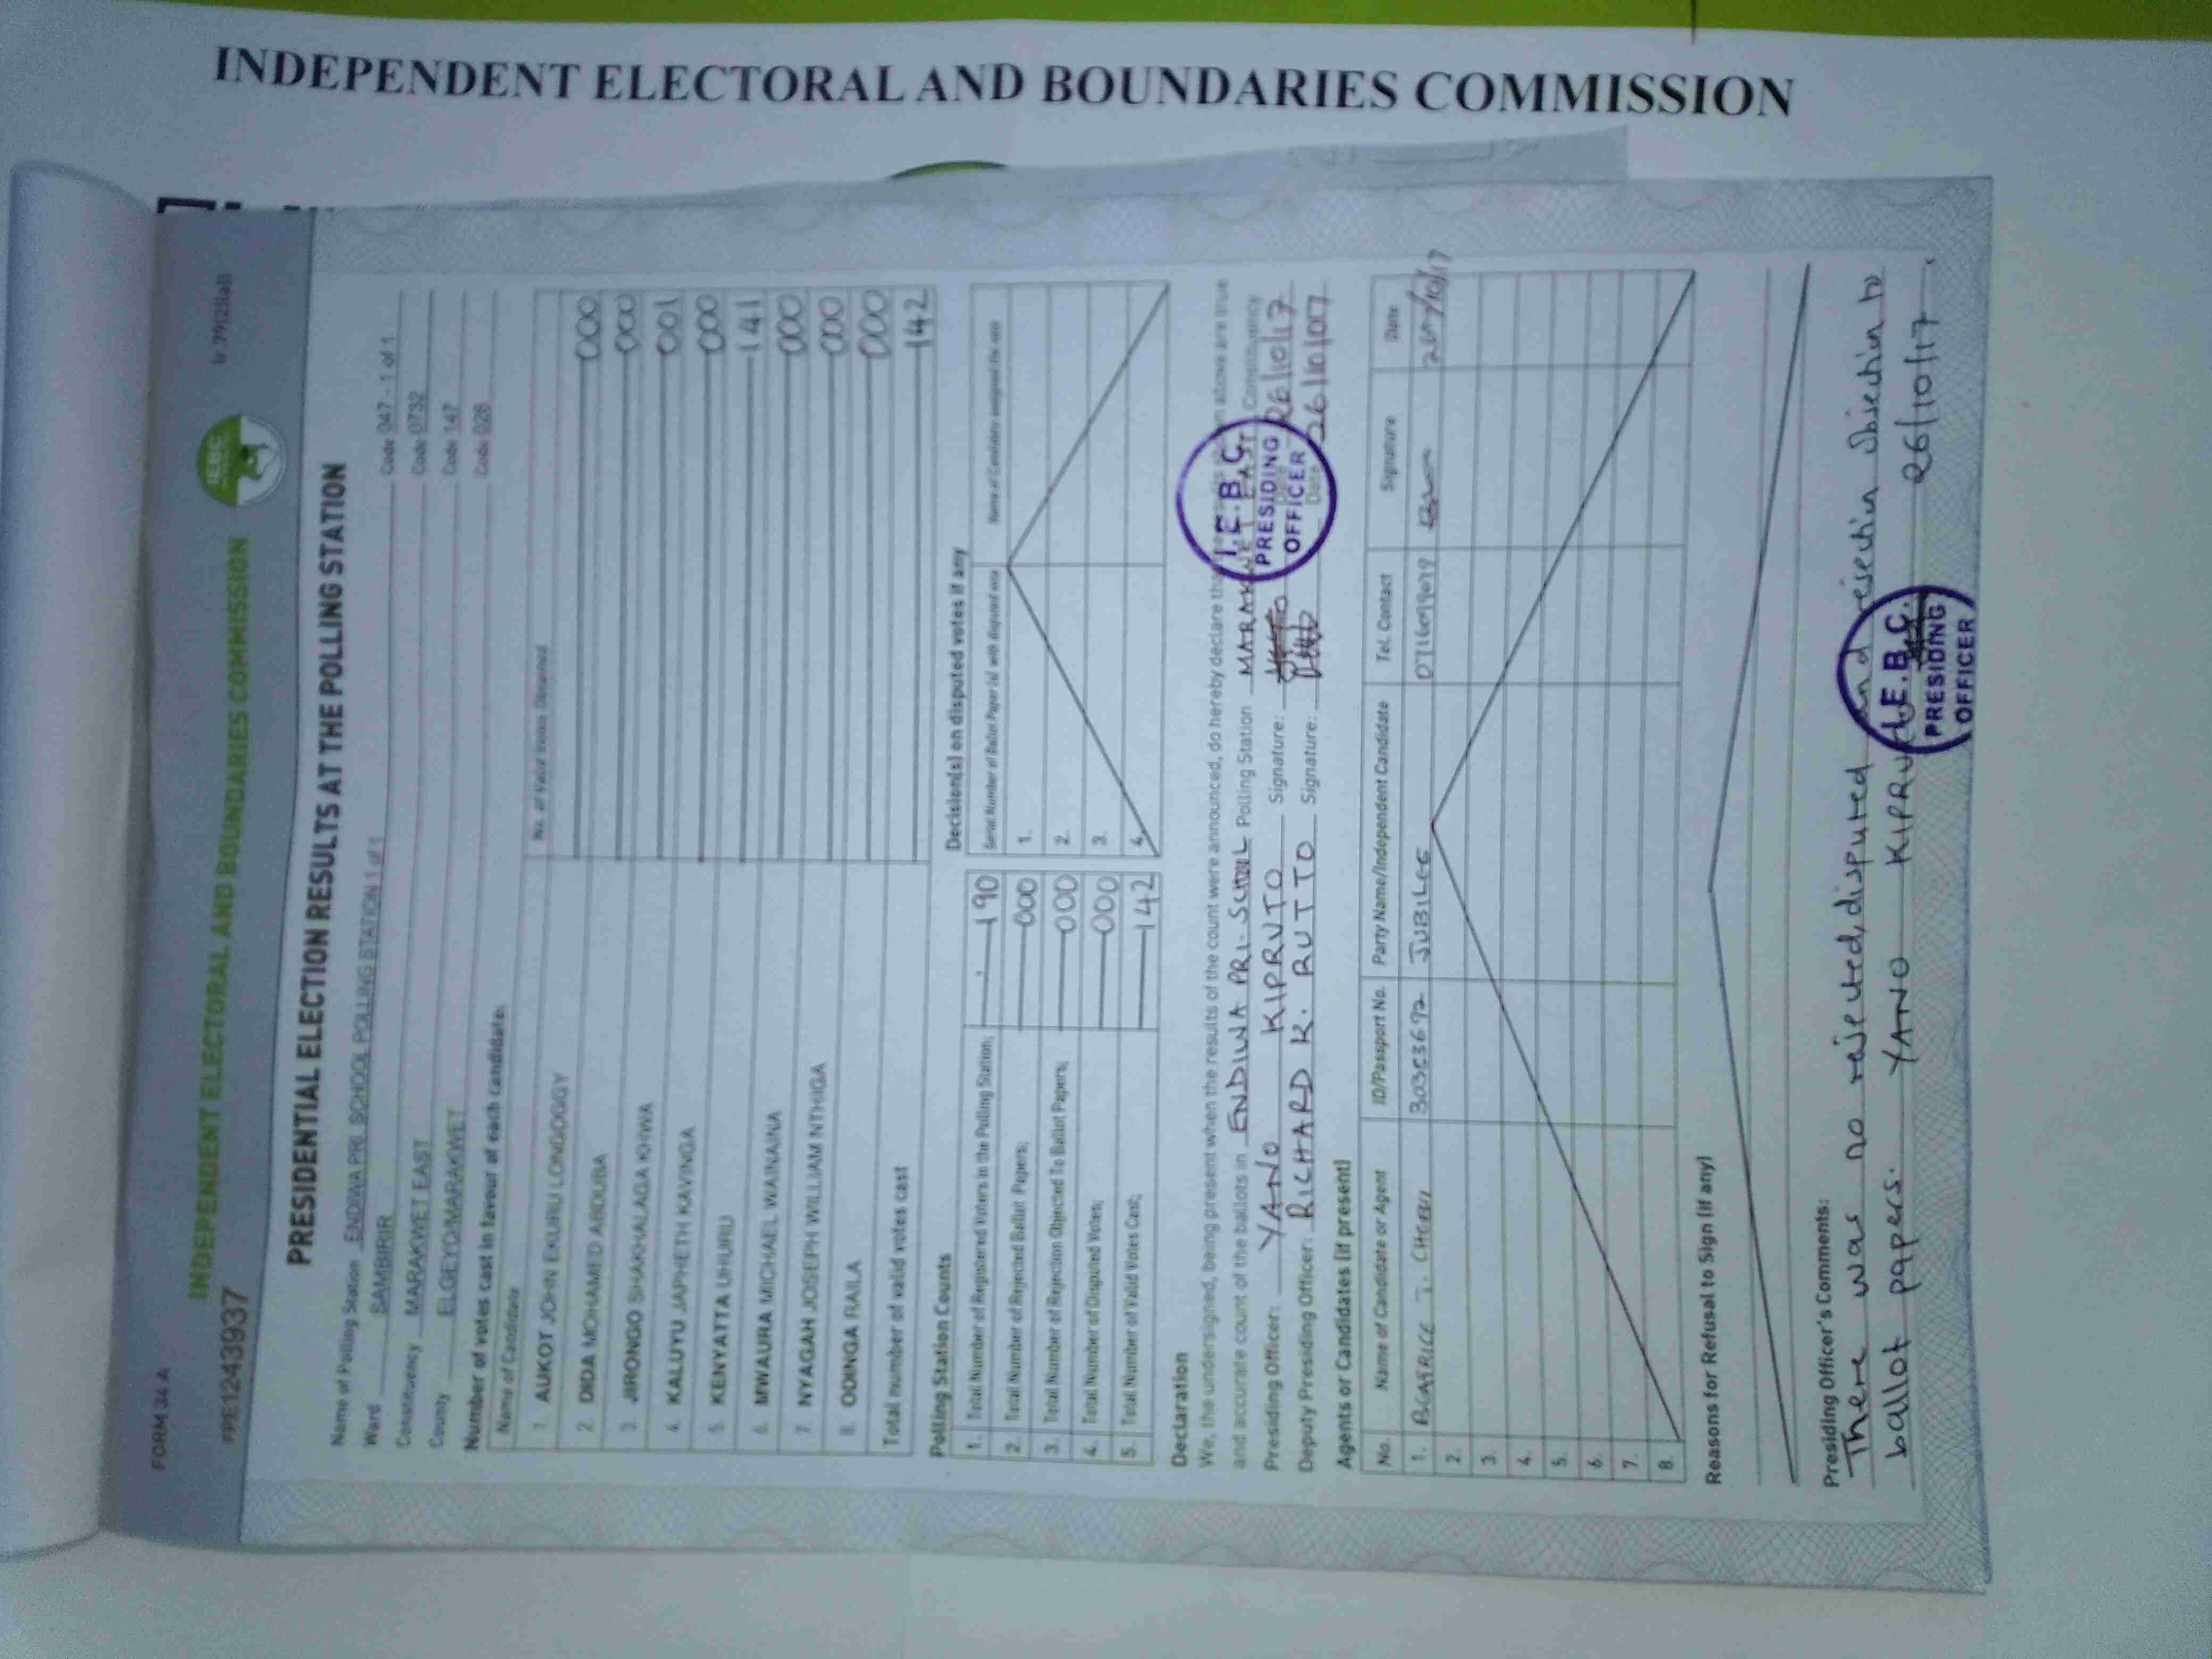 INDEPENDENT ELECTORAL AND BOUNDARIES COMMISSION
FORM 34 A
INDEPENDENT ELECTORAL AND BOUNDARIES COMMISSION
IEBC
PRESIDENTIAL ELECTION RESULTS AT THE POLLING STATION
Name of Polling Station ENDIWA PRI. SCHOOL POLLING STATION 1 of 1 Code 047 - 1 of 1
Ward SAMBIRIR Code 0732
Constituency MARAKWET EAST Code 147
County ELGEYO/MARAKWET Code 028
Number of votes cast in favour of each candidate:
Name of Candidate No. of Valid Votes Obtained
1. AUKOT JOHN EKURU LONGOGGY 000
2. DIDA MOHAMED ABDUBA 000
3. JIRONGO SHAKHALAGA KHWA 001
4. KALUYU JAPHETH KAVINGA 000
5. KENYATTA UHURU 141
6. MWAURA MICHAEL WAINAINA 000
7. NYAGAH JOSEPH WILLIAM NTHIGA 000
8. ODINGA RAILA 000
Total number of valid votes cast 142
Polling Station Counts
1. Total Number of Registered Voters in the Polling Station; 190
2. Total Number of Rejected Ballot Papers; 000
3. Total Number of Rejection Objected To Ballot Papers; 000
4. Total Number of Disputed Votes; 000
5. Total Number of Valid Votes Cast; 142
Decision(s) on disputed votes if any
Serial Number of Ballot Paper (s) with disputed vote Name of Candidate assigned the vote
1.
2.
3.
4.
Declaration
We, the undersigned, being present when the results of the count were announced, do hereby declare that above are true
and accurate count of the ballots in ENDIWA PRI. SCHOOL Polling Station MARAKWET EAST Constituency
Presiding Officer: YANO KIPRUTO Signature: 26/10/17
Deputy Presiding Officer: RICHARD K. RUTTO Signature: Date 26/10/017
I.E.B.C.
PRESIDING
OFFICER
Agents or Candidates (if present)
No. Name of Candidate or Agent ID/Passport No. Party Name/Independent Candidate Tel. Contact Signature Date
1. BEATRICE JUBILEE
2.
3.
4.
5.
6.
7.
8.
Reasons for Refusal to Sign (if any)
Presiding Officer's Comments:
There was no rejected, disputed and rejection objection to
ballot papers. YANO KIPRUTO 26/10/17.
I.E.B.C.
PRESIDING
OFFICER